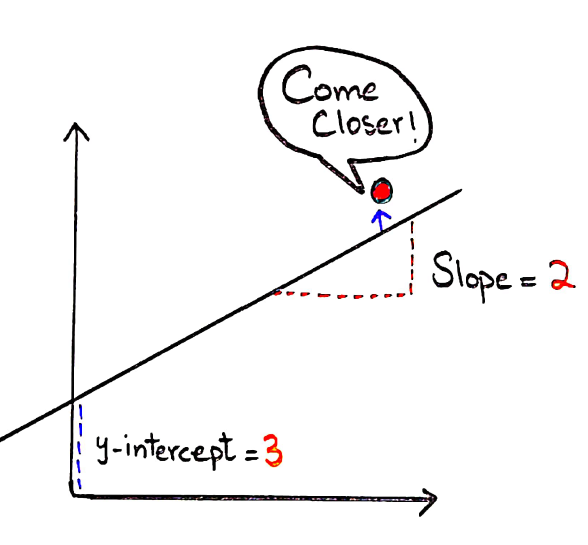 Come
Closer!
Slope = 2
y-intercept = 3